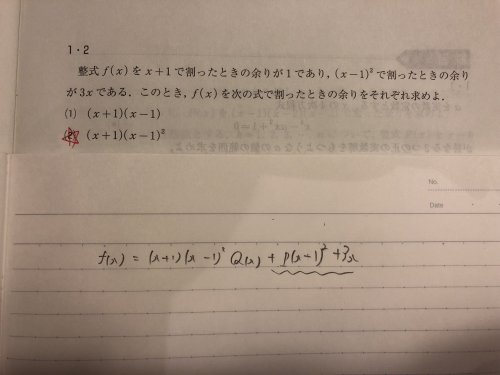 1・2
整式 f(x) を x+1 で割ったときの余りが 1 であり，(x−1)² で割ったときの余り
が 3x である．このとき，f(x) を次の式で割ったときの余りをそれぞれ求めよ．
(1) (x+1)(x−1)
(2) (x+1)(x−1)²
No.
Date
f(x) = (x+1)(x−1)² Q(x) + p(x−1)² + 3x